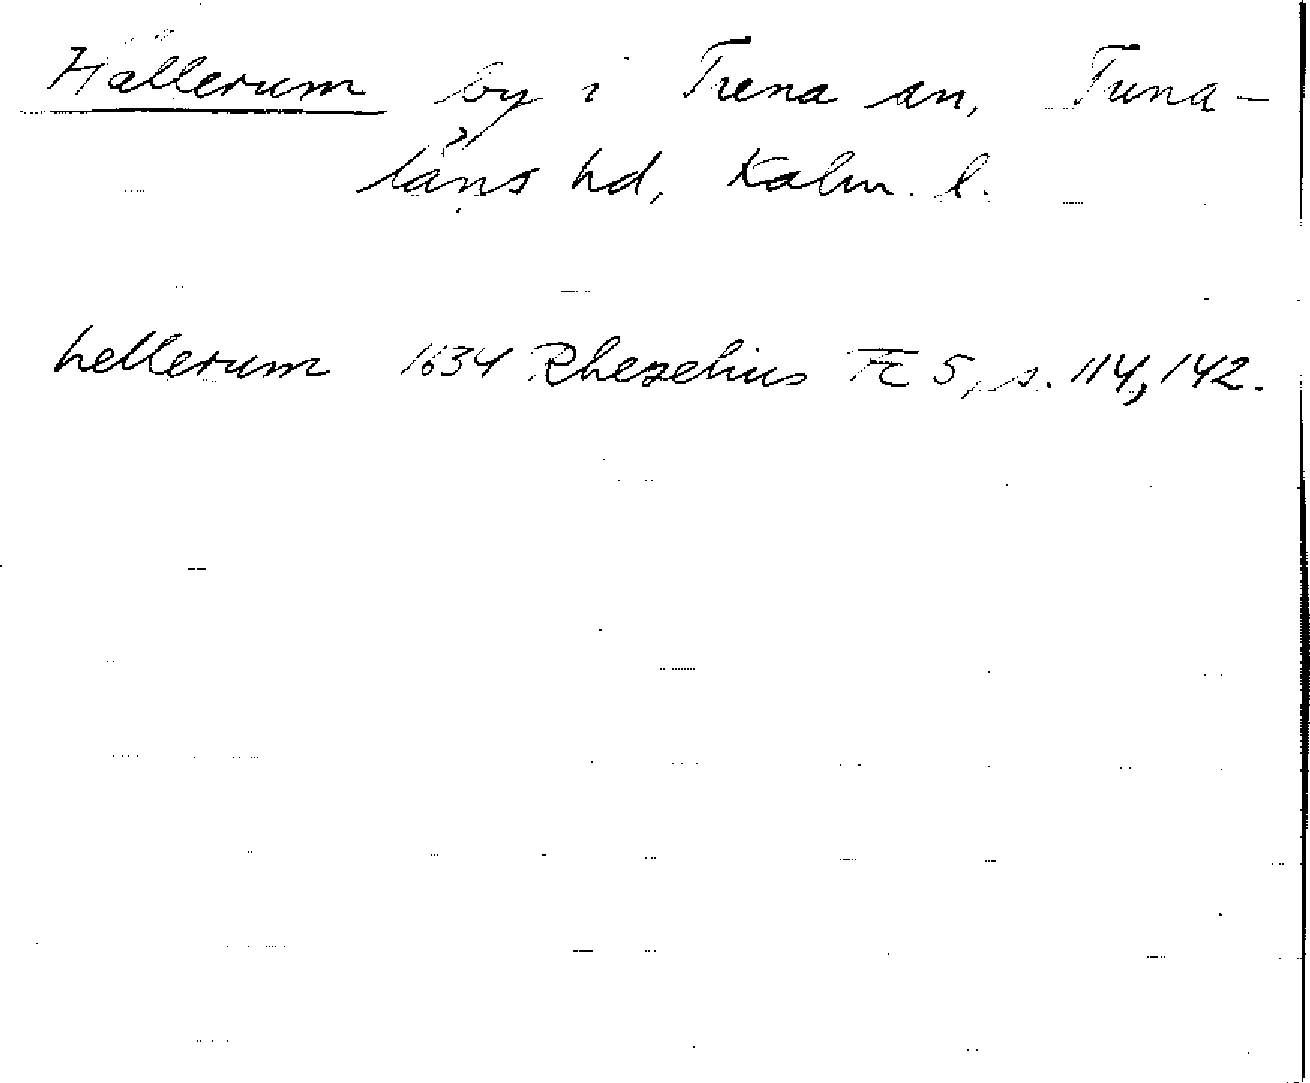 Hällerum by i Tuna sn, Tuna-
läns hd, Kalm. l.
hellerum 1634 Rhezelius Fc 5, s. 114, 142.